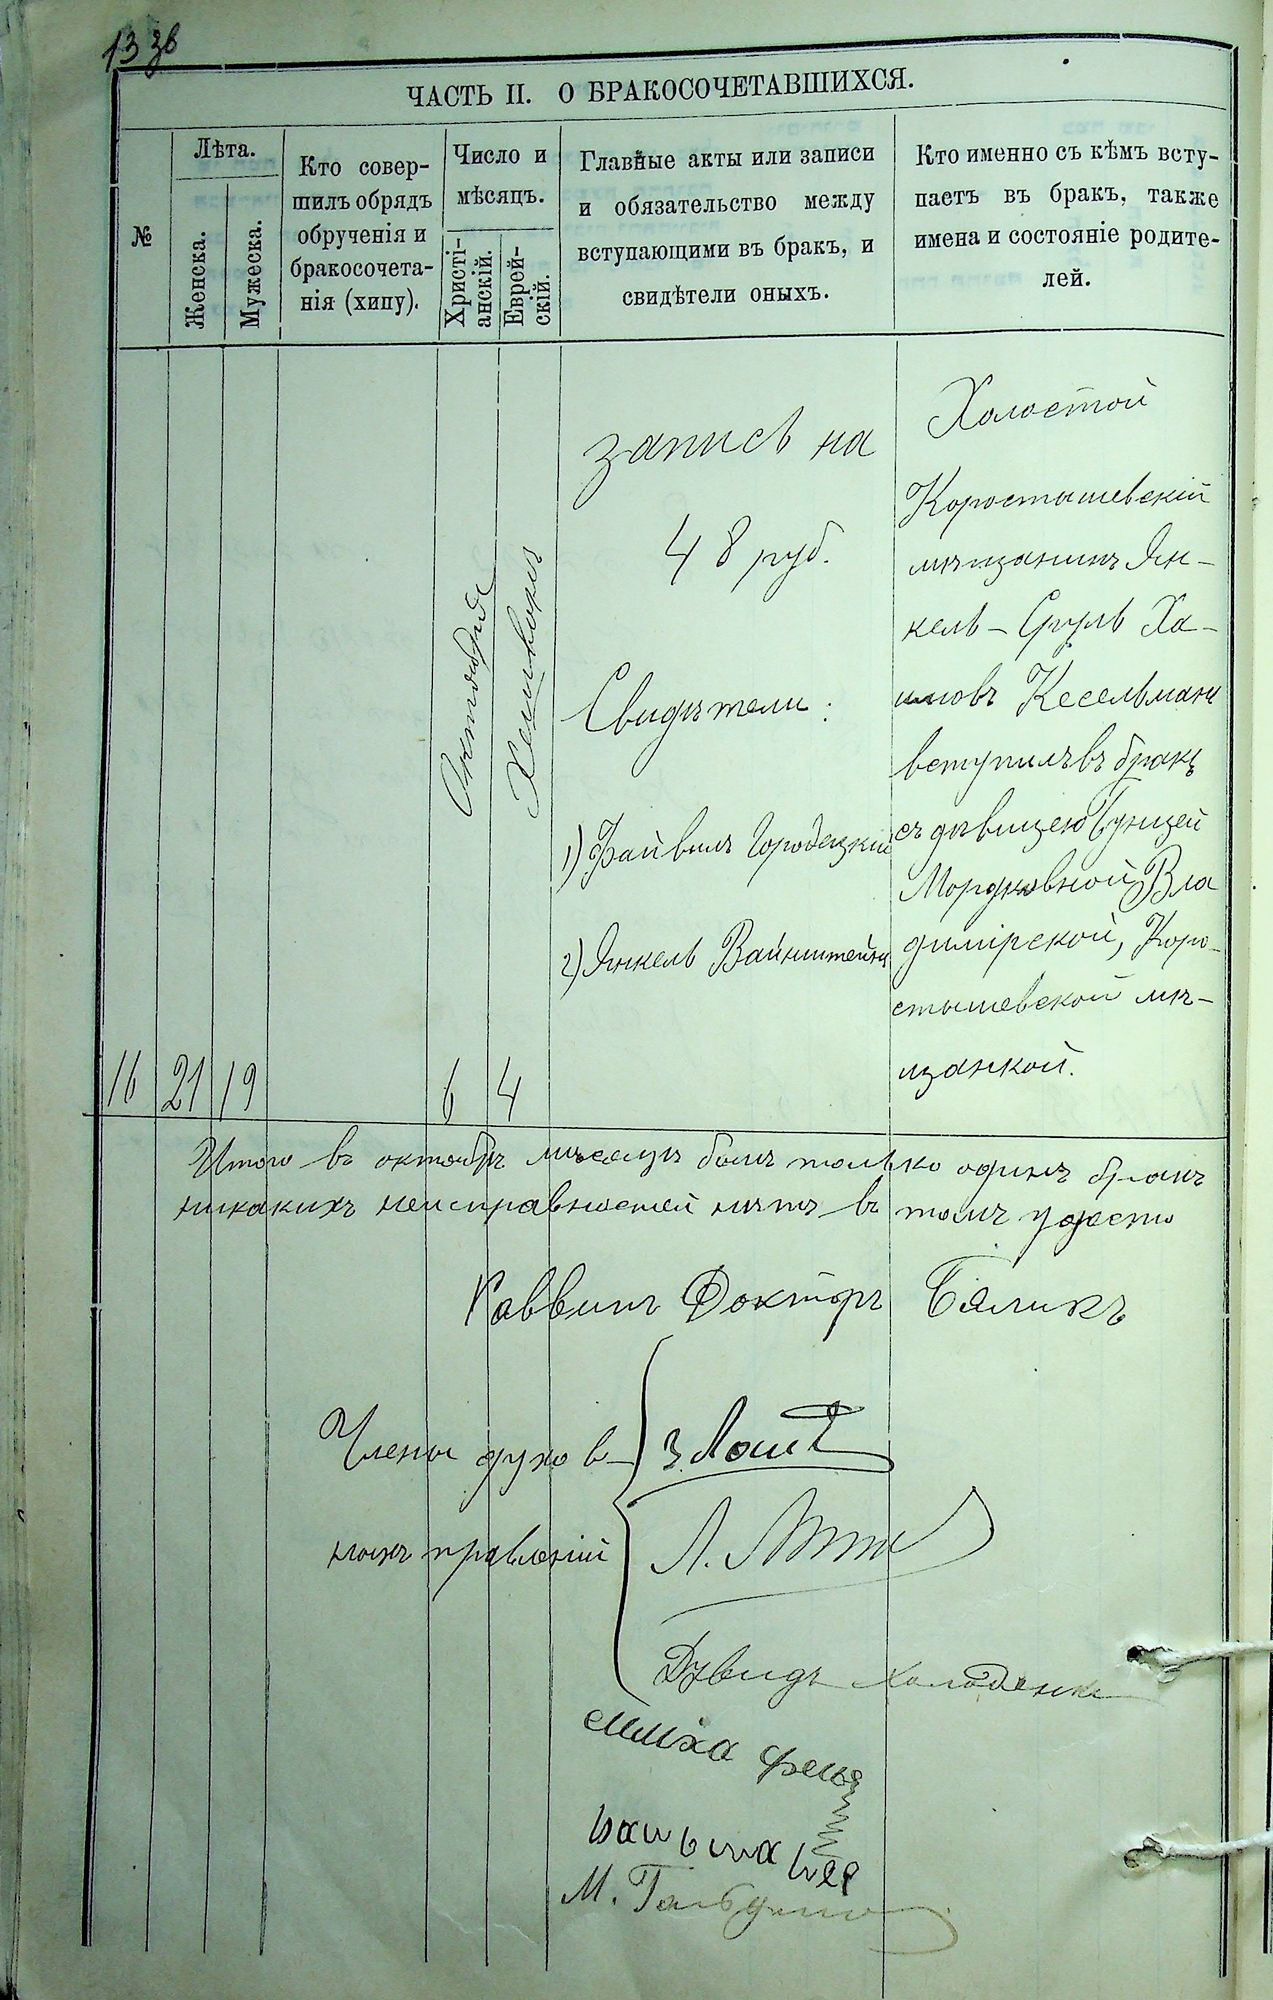 13 зв
ЧАСТЬ II. О БРАКОСОЧЕТАВШИХСЯ.
№
Лѣта.
Женска.
Мужеска.
Кто совер-
шилъ обрядъ
обрученія и
бракосочета-
нія (хипу).
Число и
мѣсяцъ.
Христі-
анскій.
Еврей-
скій.
Главные акты или записи
и обязательство между
вступающими въ бракъ, и
свидѣтели оныхъ.
Кто именно съ кѣмъ всту-
паетъ въ бракъ, также
имена и состояніе родите-
лей.
16
21
19
Октября
6
Хешвонъ
4
запись на
48 руб.
Свидѣтели:
1) Файвель Городецкій
2) Янкель Вайнштейнъ
Холостой
Коростышевскій
мѣщанинъ Ян-
кель-Сруль Ха-
имовъ Кесельманъ
вступилъ въ бракъ
съ дѣвицею Бунцей
Мордковной Вла
димірской, Коро-
стышевской мѣ-
щанкой.
Итого въ октябрѣ мѣсяцѣ былъ только одинъ бракъ
никакихъ неисправностей нѣтъ въ томъ удосто
Раввинъ Докторъ Бяликъ
Члены духов-
ныхъ правленій
Л.
Дувидъ Холоденко
М.